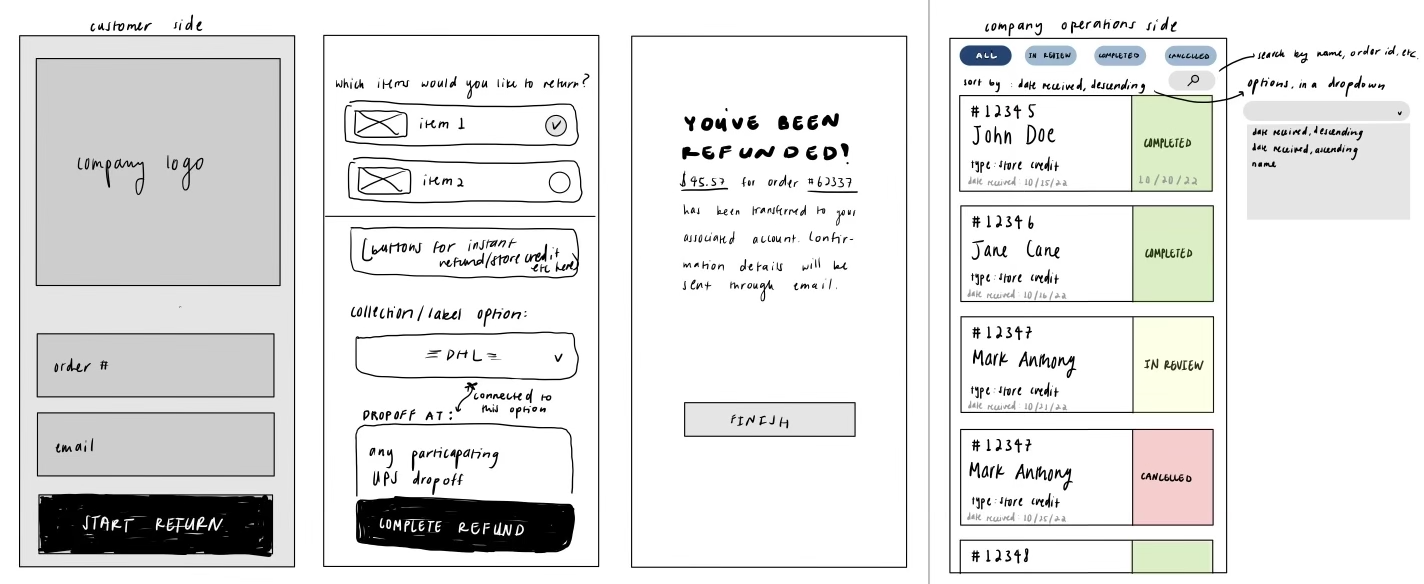 customer side
company logo
order #
email
START RETURN
which items would you like to return?
item 1
item 2
[buttons for instant
refund/store credit
etc here]
collection/label option:
DHL
connected to
this option
DROPOFF AT:
any participating
UPS dropoff
COMPLETE REFUND
YOU'VE BEEN
REFUNDED!
$45.57 for order #62337
has been transferred to your
associated account. Confir-
mation details will be
sent through email.
FINISH
company operations side
ALL
IN REVIEW
COMPLETED
CANCELLED
search by name, order id, etc.
sort by : date received, descending
options, in a dropdown
date received, descending
date received, ascending
name
#12345
John Doe
type: store credit
date received: 10/15/22
COMPLETED
10/20/22
#12346
Jane Cane
type: store credit
date received: 10/16/22
COMPLETED
#12347
Mark Anthony
type: store credit
date received: 10/21/22
IN REVIEW
#12347
Mark Anthony
type: store credit
date received: 10/25/22
CANCELLED
#12348